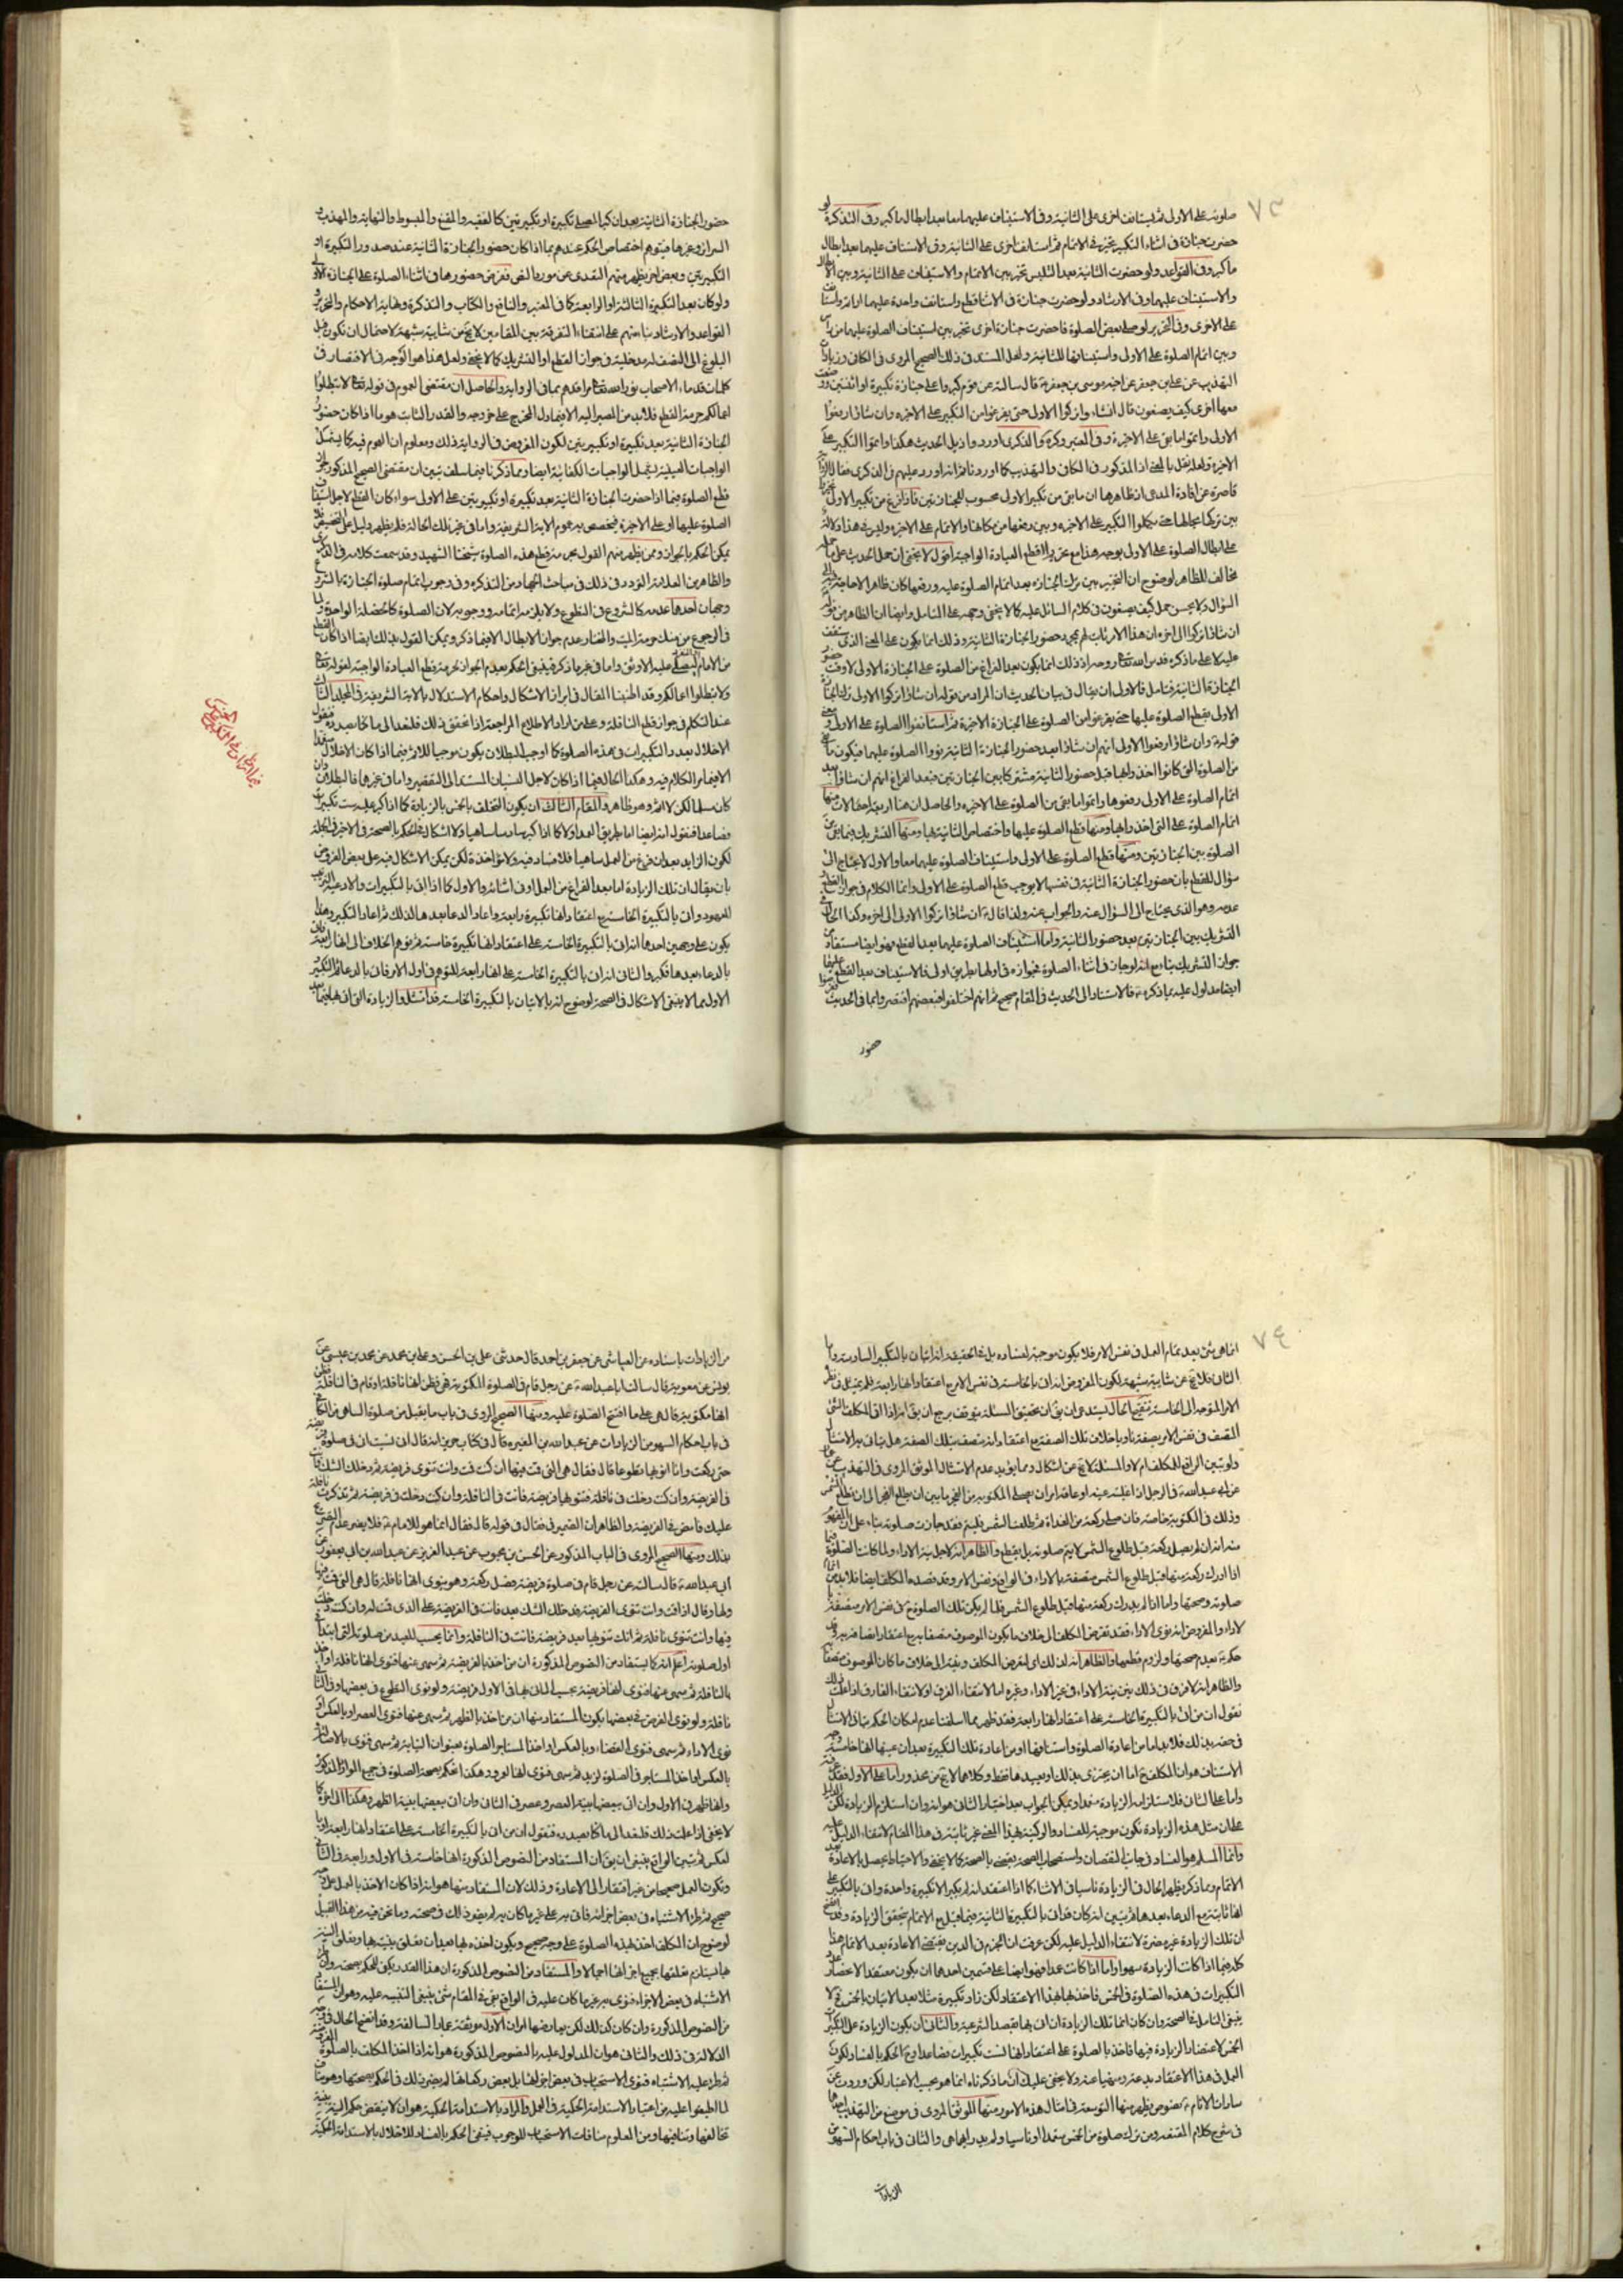 ٧٣
صلوته على الاولى ثم يستانف اخرى على الثانية وفى الاستيناف عليهما معا بعد ابطال ما كبر وفى التذكرة لو
حضرت جنازة فى اثناء التكبير تخير فى الاتمام ثم استانف اخرى على الثانية وفى الاستيناف عليهما بعد ابطال
ما كبر وفى القواعد ولو حضرت الثانية بعد التلبس تخير بين الاتمام والاستيناف على الثانية وبين الابطال
والاستيناف عليهما وفى الارشاد ولو حضرت جنازة فى الاثنا قطع واستانف واحدة عليهما او اتم واستانف
على الاخرى وفى التحرير لو صلى بعض الصلوة فاحضرت جنازة اخرى تخير بين استيناف الصلوة عليهما من راس
وبين اتمام الصلوة على الاولى واستينافها للثانية ولعل المستند فى ذلك الصحيح المروى فى الكافى وزيادات
التهذيب عن على بن جعفر عن اخيه موسى بن جعفر قال سالته عن قوم كبروا على جنازة تكبيرة او اثنتين ووضعت
معها اخرى كيف يصنعون قال ان شاءوا تركوا الاولى حتى يفرغوا من التكبير على الاخيرة وان شاؤا رفعوا
الاولى واتموا ما بقى على الاخيرة وفى المعتبر وكره والذكرى اوردوا ذيل الحديث هكذا واتموا التكبير على
الاخيرة ولعله نقل بالمعنى اذ المذكور فى الكافى والتهذيب كما اوردنا ثم انه اورد عليهم فى الذكرى فقال
قاصرة عن افادة المدعى اذ ظاهرها ان ما بقى من تكبير الاولى محسوب للجنازتين فاذا فرغ من تكبير الاولى
بين تركها بحالها حتى يكملوا التكبير على الاخيرة وبين رفعها من مكانها والاتمام على الاخيرة وليس فى هذا دلالة
على ابطال الصلوة على الاولى بوجه هذا مع تحريم قطع العبادة الواجبة اقول لا يخفى ان حمل الحديث على ما حمله
مخالف للظاهر لوضوح ان التخيير بين ترك الجنازة بعد اتمام الصلوة عليه ورفعها كان ظاهرا لا حاجة
السؤال ولا يحسن حمل كيف يصنعون فى كلام السائل عليه كما لا يخفى وجهه على المتامل وايضا ان الظاهر من قوله
ان شاؤا تركوا الى اخره ان هذا الارتباب لم يجئ حضور الجنازة الثانية وذلك انما يكون على المعنى الذى
عليه لا على ما ذكره قدس الله تعالى روحه اذ ذلك انما يكون بعد الفراغ من الصلوة على الجنازة الاولى لا وقت حضور
الجنازة الثانية فتامل فالاولى ان يقال فى بيان الحديث ان المراد من قوله ان شاؤا تركوا الاولى ترك الجنازة
الاولى بقطع الصلوة عليها حتى يفرغوا من الصلوة على الجنازة الاخيرة ثم استانفوا الصلوة على الاولى ومعنى
قوله وان شاؤا رفعوا الاولى انهم ان شاؤا بعد حضور الجنازة الثانية نووا الصلوة عليهما فيكون ما بقى
من الصلوة التى كانوا اخذوا بها قبل حضور الثانية مشتركا بين الجنازتين فبعد الفراغ انهم ان شاؤا بعد
اتمام الصلوة على الاولى رفعوها واتموا ما بقى من الصلوة على الاخيرة والحاصل ان هنا اربعة احتمالات منها
اتمام الصلوة على التى اخذ بها ومنها قطع الصلوة عليها واختصاص الثانية بها ومنها التشريك فيما بقى من
الصلوة بين الجنازتين ومنها قطع الصلوة على الاولى واستيناف الصلوة عليهما معا والاول لا يحتاج الى
سؤال للقطع بان حضور الجنازة الثانية فى نفسه لا يوجب قطع الصلوة على الاولى وانما الكلام فى جواز القطع
عدمه وهو الذى يحتاج الى السؤال عنه والجواب عنه ولذا قال ان شاؤا تركوا الاولى الى اخره وكذا الحال فى
التشريك بين الجنازتين بعد حضور الثانية واما استيناف الصلوة عليهما بعد القطع فهو ايضا مستفاد من
جواز التشريك بناء مع انه لو جاز فى اثناء الصلوة فجوازه فى اولها بطريق اولى فالاستيناف بعد القطع
ايضا مدلول عليه بما ذكره فالاستناد الى الحديث فى المقام صحيح ثم انهم اختلفوا فبعضهم اقتصروا بما فى الحديث
حضور
حضور الجنازة الثانية بعد ان كبر المصلى تكبيرة او تكبيرتين كالفقيه والمقنع والمبسوط والنهاية والمهذب و
السرائر وغيرها فيتوهم اختصاص الحكم عندهم بما اذا كان حضور الجنازة الثانية عند صدور التكبيرة او
التكبيرتين وبعض اخر يظهر منهم التعدى عن مورد النص ففرض حضورها فى اثناء الصلوة على الجنازة الاولى
ولو كان بعد التكبيرة الثالثة او الرابعة كما فى المعتبر والنافع والكتاب والتذكرة ونهاية الاحكام والتحرير و
القواعد والارشاد بناء منهم على انتفاء التفرقة بين المقامين لا يخ عن شايبة شبهة لاحتمال ان يكون قبل
البلوغ الى النصف له مدخلية فى جواز القطع او التشريك كما لا يخفى ولعل هذا هو الوجه فى الاقتصار فى
كلمات قدماء الاصحاب نور الله تعالى مراقدهم بما فى الرواية والحاصل ان مقتضى العموم فى قوله تعالى لا تبطلوا
اعمالكم حرمة القطع فلا بد من المصير اليه الا فيما دل المخرج على خروجه والقدر الثابت هو ما اذا كان حضور
الجنازة الثانية بعد تكبيرة او تكبيرتين لكون المفروض فى الرواية ذلك ومعلوم ان العموم فيه كما يشمل
الواجبات العينية يشمل الواجبات الكفائية ايضا ومما ذكرنا فيما سلف تبين ان مقتضى الصحيح المذكور جواز
قطع الصلوة فيما اذا حضرت الجنازة الثانية بعد تكبيرة او تكبيرتين على الاولى سواء كان القطع لاجل استيناف
الصلوة عليها او على الاخيرة فيخصص به عموم الاية الشريفة واما فى غير تلك الحالة فلم يظهر دليل على التخصيص فلا
يمكن الحكم بالجواز وممن يظهر منهم القول بحرمة قطع هذه الصلوة شيخنا الشهيد وقد سمعت كلامه فى الذكرى
والظاهر من العلامة التردد فى ذلك فى مباحث الجهاد من التذكرة وفى وجوب اتمام صلوة الجنازة بالشروع
وجهان احدهما عدمه كالشروع فى التطوع ولا يلزمه اتمامه ووجوبه لان الصلوة كالخصلة الواحدة ولما
فى الرجوع من هتك حرمة الميت والمختار عدم جواز الابطال الا فيما ذكر ويمكن القول بذلك ايضا اذا كان القطع
من الامام عليه الاوثق واما فى غير ما ذكر فينبغى الحكم بعدم الجواز لحرمة قطع العبادة الواجبة لقوله تعالى
ولا تبطلوا اعمالكم وقد اطنبنا المقال فى ابراز الاشكال واحكام الاستدلال بالاية الشريفة فى المجلد الثالث
عند التكلم فى جواز قطع النافلة وعلى من اراد الاطلاع المراجعة اذا تحقق ذلك فلنعد الى ما كنا بصدده فنقول
الاخلال بعدد التكبيرات فى هذه الصلوة كما اوجب البطلان يكون موجبا للاثم فيما اذا كان الاخلال عمدا
الا فيما مر الكلام فيه وهكذا الحال فيما اذا كان لاجل النسيان المستند الى التقصير واما فى غيرهما فالبطلان وان
كان مسلما لكن لا اثم وهو ظاهر والمقام الثالث ان يكون التخلف بالخمس بالزيادة كما اذا كبر عليه ست تكبيرات
فصاعدا فنقول انه ايضا اما بطريق العمد اولا كما اذا كبر سادسا ساهيا ولا اشكال فى الحكم بالصحة فى الاخير فى الجملة
لكون الزايد بعد ان فرغ من العمل ساهيا فلا فساد فيه ولا مؤاخذة لكن يمكن الاشكال فيه على بعض الفروض
بان يقال ان تلك الزيادة اما بعد الفراغ من العمل او فى اثنائه والاول كما اذا اتى بالتكبيرات والادعية بالترتيب
المعهود واتى بالتكبيرة الخامسة مع اعتقاد انها تكبيرة رابعة واعاد الدعاء بعدها لذلك ثم اعاد التكبير وهذا
يكون على وجهين احدهما انه اتى بالتكبيرة الخامسة على اعتقاد انها تكبيرة خامسة ثم توهم الخلاف انها رابعة فاتى
بالدعاء بعدها فكبر والثانى انه اتى بالتكبيرة الخامسة على انها رابعة للتوهم فى اول الامر فاتى بالدعاء ثم التكبير
الاول مما لا ينبغى الاشكال فى الصحة لوضوح انه بالاتيان بالتكبيرة الخامسة قد امتثل والزيادة التى اتى بها فيما بعد
٧٤
انما هى شئ بعد تمام العمل فى نفس الامر فلا يكون موجبة لفساده بل فى الحقيقة انه اتيان بالتكبير السادسة واما
الثانى فلا يخ عن شايبة شبهة لكون المفروض انه اتى بالخامسة فى نفس الامر مع اعتقاد انها رابعة فلم يمتثل فى نظره
الامر المتوجه الى الخامسة تنقيح الحال يستدعى ان يق ان تحقيق المسئلة يتوقف برجح ان يق انه اذا اتى المكلف الشئ
المتصف فى نفس الامر بصفة ناويا خلاف تلك الصفة مع اعتقاد انه متصف بتلك الصفة هل ينافى به الامتثال
ولو تبين الواقع للمكلف ام لا والمسئلة لا يخ عن اشكال ومما يؤيد عدم الامتثال الموثق المروى فى التهذيب عن عمار
عن ابى عبد الله فى الرجل اذا غلبته عينه او عاقه امر ان يصلى المكتوبة من الفجر ما بين ان يطلع الفجر الى ان تطلع الشمس
وذلك فى المكتوبة خاصة فان صلى ركعة من الغداة ثم طلعت الشمس فليتم فقد جازت صلوته بناء على ان المفهوم
منه انه ان لم يصل ركعة قبل طلوع الشمس لا يتم صلوته بل يقطع والظاهر انه لاجل نية الاداء ولما كانت الصلوة فيما
اذا ادرك ركعة منها قبل طلوع الشمس متصفة بالاداء فى الواقع ونفس الامر وقد قصده المكلف ايضا فلا بد من اتمام
صلوته وصحتها واما اذا لم يدرك ركعة منها قبل طلوع الشمس فلما لم يكن تلك الصلوة فى نفس الامر متصفة بالا
لاداء والمفروض انه نوى الاداء فقد تعرض المكلف الى خلاف ما يكون الموصوف متصفا به مع اعتقاد اتصافه به وقد
حكم بعدم صحتها ولزوم قطعها فالظاهر انه لذلك اى لتعرض المكلف ونيته الى خلاف ما كان الموصوف متصفا
والظاهر انه لا فرق فى ذلك بين نية الاداء فى غير الاداء وغيره اما لانتفاء الفرق او لانتفاء الفارق اذا علمت ذلك
نقول ان من اتى بالتكبيرة الخامسة على اعتقاد انها رابعة فقد ظهر مما اسلفنا عدم امكان الحكم بتمامى الامتثال
فى حقه بذلك فلا بد اما من اعادة الصلوة واستينافها او من اعادة تلك التكبيرة بعد ان عينها انها خامسة وجه
الاستيناف هو ان المكلف اما ان يجتزى بذلك او يعيدها فقط وكلاهما لا يخ من محذور اما على الاول فقد
واما على الثانى فلاستلزامه الزيادة مفسدا ويمكن الجواب بعد اختيار الثانى هو انه وان استلزم الزيادة لكن
على ان مثل هذه الزيادة تكون موجبة للفساد والركنية بهذا المعنى غير ثابتة فى هذا المقام لانتفاء الدليل
وانما المسلم هو الفساد فى جانب النقصان واستصحاب الصحة يقتضى بالصحة كما لا يخفى والاحتياط يحصل بالاعادة بعد
الاتمام ومما ذكر يظهر الحال فى الزيادة ناسيا فى الاثناء كما اذا اعتقد انه لم يكبر الا تكبيرة واحدة واتى بالتكبير على
انها ثانية مع الدعاء بعدها ثم تبين انه كان قد اتى بالتكبيرة الثانية فيما قبل مع الاتمام يتحقق الزيادة وقد اتضح
ان تلك الزيادة غير مضرة لانتفاء الدليل عليه لكن عرفت ان الجزم فى الدين يقتضى الاعادة بعد الاتمام هذا
كله فيما اذا كانت الزيادة سهوا واما اذا كانت عمدا فهو ايضا على قسمين احدهما ان يكون معتقدا لانحصار عدد
التكبيرات فى هذه الصلوة فى الخمس فاخذها بهذا الاعتقاد لكن زاد تكبيرة مثلا بعد الاتيان بالخمس فلا
ينبغى التامل فى الصحة وان كان اثما بتلك الزيادة ان اتى بها بقصد الشرعية والثانى ان يكون الزيادة على التكبيرات
الخمس لاعتقاد الزيادة فيها فاخذ بالصلوة على اعتقاد انها لست تكبيرات فصاعدا وفى الحكم بالفساد لكون
العمل فى هذا الاعتقاد بدعة ومنهيا عنه ولا يخفى عليك ان ما ذكرناه انما هو بحسب الاعتبار لكن ورودت عن
سادات الانام نصوص يظهر منها التوسعة فى امثال هذه الامور منها الموثق المروى فى موضع من التهذيب احدهما
فى شرح كلام المقنعة ومن ترك صلوة من الخمس متعمدا او ناسيا ولم يدر ايها هى والثانى فى باب احكام السهو من
الزيادات
من الزيادات باسناده عن العياشى عن جعفر بن احمد قال حدثنى على بن الحسن وعلى بن محمد عن محمد بن عيسى عن
يونس عن معوية قال سالت ابا عبد الله عن رجل قام فى الصلوة المكتوبة فسهى فظن انها نافلة او قام فى النافلة فظن
انها مكتوبة قال هى على ما افتتح الصلوة عليه ومنها الصحيح المروى فى باب ما يقبل من صلوة الساهى من الكافى
فى باب احكام السهو من الزيادات عن عبد الله بن المغيره قال فى كتاب حريز انه قال انى نسيت انى فى صلوة فريضة
حتى ركعت وانا انويها تطوعا قال فقال هى التى قمت فيها ان كنت قمت وانت تنوى فريضة ثم دخلك الشك فانت
فى الفريضة وان كنت دخلت فى نافلة فنويتها فريضة فانت فى النافلة وان كنت دخلت فى فريضة ثم ذكرت نافلة كانت
عليك فامض فى الفريضة والظاهر ان الضمير فى فقال فى قوله قال فقال انما هو للامام فلا يضر عدم التصريح
بذلك ومنها الصحيح المروى فى الباب المذكور عن الحسن بن محبوب عن عبد العزيز عن عبد الله بن ابى يعفور عن
ابى عبد الله قال سالته عن رجل قام فى صلوة فريضة فصلى ركعة وهو ينوى انها نافلة قال هى التى قمت فيها
ولها وقال اذا قمت وانت تنوى الفريضة فدخلك الشك بعد فانت فى الفريضة على الذى قمت له وان كنت دخلت
فيها وانت تنوى نافلة ثم انك تنويها بعد فريضة فانت فى النافلة وانما يحسب للعبد من صلوته التى ابتدا فى
اول صلوته اعلم انه كما يستفاد من النصوص المذكورة ان من اخذ بالفريضة ثم سهى عنها فنوى انها نافلة او اخذ
بالنافلة ثم سهى عنها فنوى انها فريضة يحسب الماتى بها فى الاول فريضة ولو نوى التطوع فى بعضها وفى الثانى
نافلة ولو نوى الفرض فى بعضها يكون المستفاد منها ان من اخذ بالظهر ثم سهى عنها فنوى العصر او بالعكس او
نوى الاداء ثم سهى فنوى القضاء وبالعكس او اخذ المستاجر الصلوة بعنوان النيابة ثم سهى فنوى بالاصالة او
بالعكس او اخذ المستاجر فى الصلوة لزيد ثم سهى فنوى انها لعمرو وهكذا الحكم بصحة الصلوة فى جميع الموارد المذكورة
وانها ظهر فى الاول وان اتى ببعضها بنية العصر وعصر فى الثانى وان اتى ببعضها بنية الظهر وهكذا الى اخره كما
لا يخفى اذا علمت ذلك فلنعد الى ما كنا بصدده فنقول ان من اتى بالتكبيرة الخامسة على اعتقاد انها رابعة او با
لعكس ثم تبين الواقع ينبغى ان يق ان المستفاد من النصوص المذكورة انها خامسة فى الاول ورابعة فى الثانى
ويكون العمل صحيحا من غير افتقار الى الاعادة وذلك لان المستفاد منها هو انه اذا كان الاخذ بالعمل على وجه
صحيح ثم طرا الاشتباه فى بعض اجزائه فاتى به على غير ما كان به لم يضر ذلك فى صحته وما نحن فيه من هذا القبيل
لوضوح ان المكلف اخذ بهذه الصلوة على وجه صحيح ويكون اخذه بها بعد ان تعلق بنيتها وتعلق النية
بها يستلزم تعلقها بجميع اجزائها اجمالا والمستفاد من النصوص المذكورة ان هذا القدر يكفى للحكم بصحته وان طرا
الاشتباه فى بعض الاجزاء فنوى به غير ما كان عليه فى الواقع بقى فى المقام شئ ينبغى التنبيه عليه وهو ان المستفاد
من النصوص المذكورة وان كان كذلك لكن يعارضها امران الاول موثقة عمار السالفة وقد اتضح الحال فى وجه
الدلالة فى ذلك والثانى هو ان المدلول عليه بالنصوص المذكورة هو انه اذا اخذ المكلف بالصلوة المفروضة
ثم طرا عليه الاشتباه فنوى الاستحباب فى بعض اجزائها بل بعض ركعاتها لم يضر ذلك فى الحكم بصحتها وهو مناف
لما اطبقوا عليه من اعتبار الاستدامة الحكمية فى العمل والمراد بالاستدامة الحكمية هو ان لا ينقض حكم النية بنية
تخالفها وتنافيها ومن المعلوم منافات الاستحباب للوجوب فينبغى الحكم بالفساد للاخلال بالاستدامة الحكمية